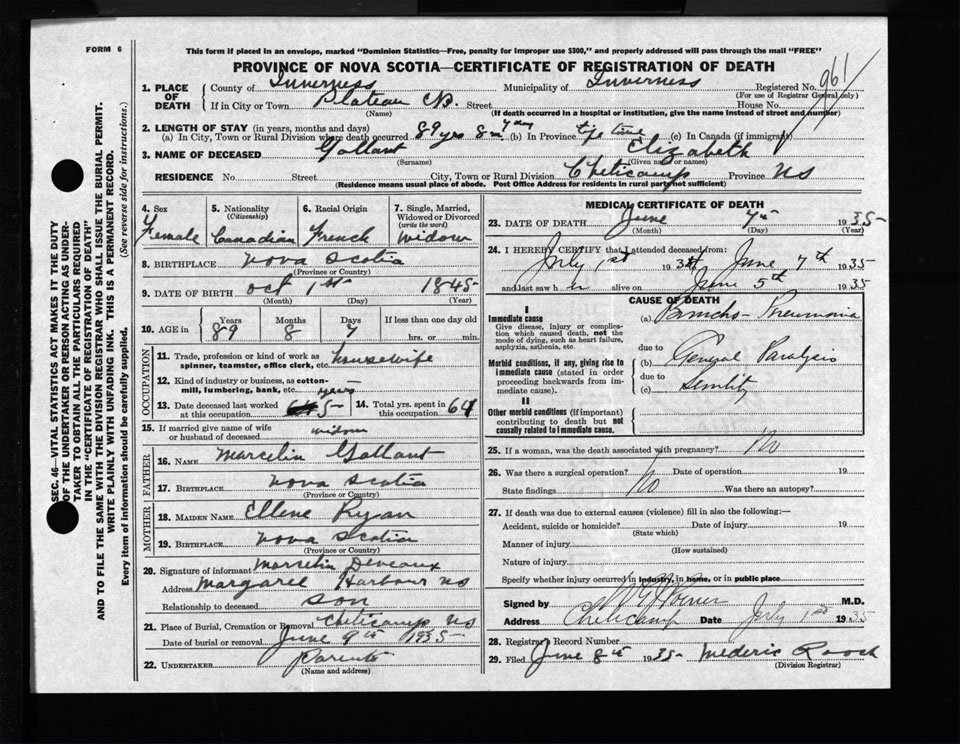 FORM 6
This form if placed in an envelope, marked "Dominion Statistics—Free, penalty for improper use $300," and properly addressed will pass through the mail "FREE"
PROVINCE OF NOVA SCOTIA—CERTIFICATE OF REGISTRATION OF DEATH
1. PLACE OF DEATH
County of Inverness Municipality of Inverness Registered No. 961
(For use of Registrar General only)
If in City or Town Plateau CB. Street House No.
(Name) (If death occurred in a hospital or institution, give the name instead of street and number)
2. LENGTH OF STAY (in years, months and days)
(a) In City, Town or Rural Division where death occurred 89 yrs 8 m 7 day (b) In Province life time (c) In Canada (if immigrant)
3. NAME OF DECEASED Gallant Elizabeth
(Surname) (Given name or names)
RESIDENCE No. Street City, Town or Rural Division Cheticamp Province NS
(Residence means usual place of abode. Post Office Address for residents in rural parts not sufficient)
4. Sex Female
5. Nationality (Citizenship) Canadian
6. Racial Origin French
7. Single, Married, Widowed or Divorced (write the word) Widow
8. BIRTHPLACE Nova Scotia
(Province or Country)
9. DATE OF BIRTH Oct 1st 1845
(Month) (Day) (Year)
10. AGE in Years 89 Months 8 Days 7 If less than one day old hrs. or min.
OCCUPATION
11. Trade, profession or kind of work as spinner, teamster, office clerk, etc. housewife
12. Kind of industry or business, as cotton-mill, lumbering, bank, etc.
13. Date deceased last worked at this occupation 5 years
14. Total yrs. spent in this occupation 64
15. If married give name of wife or husband of deceased widow
FATHER
16. NAME Marcelin Gallant
17. BIRTHPLACE Nova Scotia
(Province or Country)
MOTHER
18. MAIDEN NAME Ellene Ryan
19. BIRTHPLACE Nova Scotia
(Province or Country)
20. Signature of informant Marcelin Deveaux
Address Margaree Harbour NS
Relationship to deceased son
21. Place of Burial, Cremation or Removal Cheticamp NS
Date of burial or removal June 9th 1935
22. UNDERTAKER Parents
(Name and address)
MEDICAL CERTIFICATE OF DEATH
23. DATE OF DEATH June 7th 1935
(Month) (Day) (Year)
24. I HEREBY CERTIFY that I attended deceased from:
July 1st 193 June 7th 1935
and last saw h er alive on June 5th 1935
CAUSE OF DEATH
I
Immediate cause
Give disease, injury or complication which caused death, not the mode of dying, such as heart failure, asphyxia, asthenia, etc.
(a) Broncho-Pneumonia
due to
Morbid conditions, if any, giving rise to immediate cause (stated in order proceeding backwards from immediate cause).
(b) General Paralysis
due to
(c) Senility
II
Other morbid conditions (if important) contributing to death but not causally related to immediate cause.
25. If a woman, was the death associated with pregnancy? No
26. Was there a surgical operation? No Date of operation 19
State findings Was there an autopsy?
27. If death was due to external causes (violence) fill in also the following:—
Accident, suicide or homicide? Date of injury 19
(State which)
Manner of injury
(How sustained)
Nature of injury
Specify whether injury occurred in industry, in home, or in public place
Signed by M.D.
Address Cheticamp Date July 1st 1935
28. Registrar's Record Number
29. Filed June 8th 1935 Mederic Roach
(Division Registrar)
SEC. 46—VITAL STATISTICS ACT MAKES IT THE DUTY
OF THE UNDERTAKER OR PERSON ACTING AS UNDERTAKER TO OBTAIN ALL THE PARTICULARS REQUIRED
IN THE "CERTIFICATE OF REGISTRATION OF DEATH"
AND TO FILE THE SAME WITH THE DIVISION REGISTRAR WHO SHALL ISSUE THE BURIAL PERMIT.
WRITE PLAINLY WITH UNFADING INK. THIS IS A PERMANENT RECORD.
Every item of information should be carefully supplied. (See reverse side for instructions.)